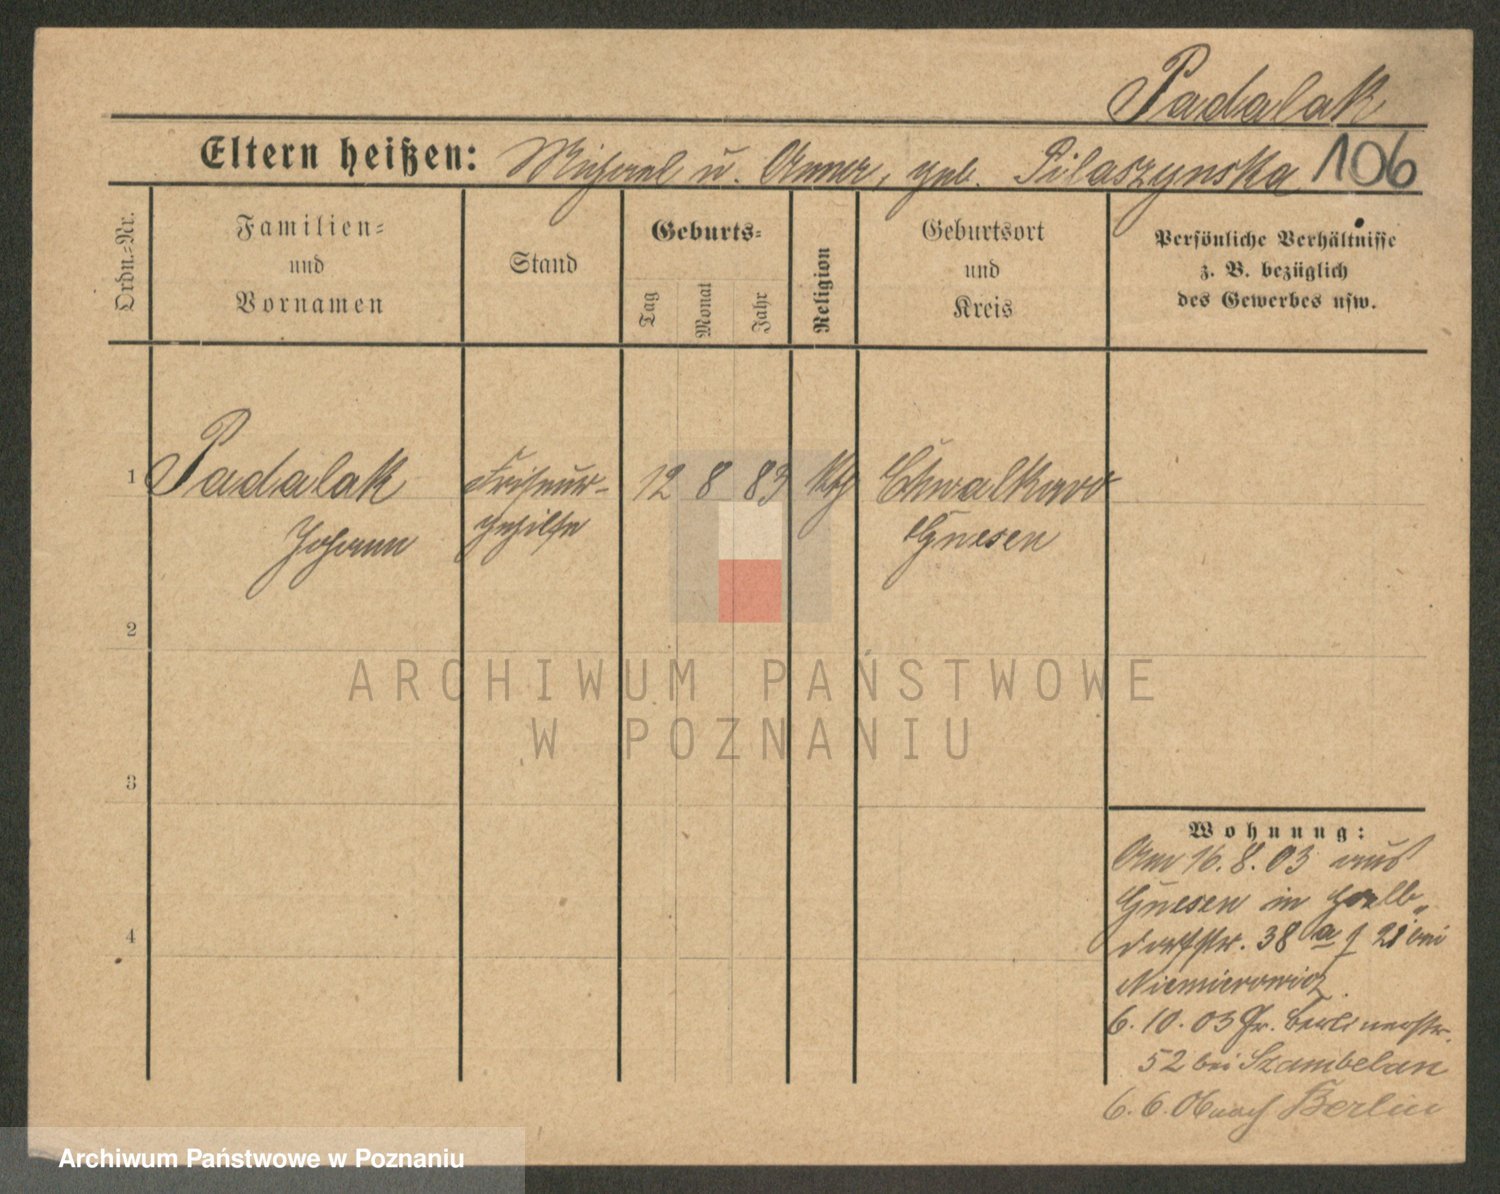 Padalak
Eltern heißen: Michael u. Anna, geb. Pilaszynska 106
Ordn.-Nr.
Familien- und Vornamen
Stand
Geburts-
Tag
Monat
Jahr
Religion
Geburtsort und Kreis
Persönliche Verhältnisse
z. B. bezüglich
des Gewerbes usw.
1 Padalak Friseur- 12 8 83 kth
Johann gehilfe Gnesen
2
3
4
ARCHIWUM PAŃSTWOWE
W POZNANIU
Wohnung:
Am 16.8.03 aus
Gnesen in
dorfstr. 38 a bei
Niemierowicz
6.10.03 Gr. Berlinerstr.
52 bei Szambelan
6.6.06 nach Berlin
Archiwum Państwowe w Poznaniu